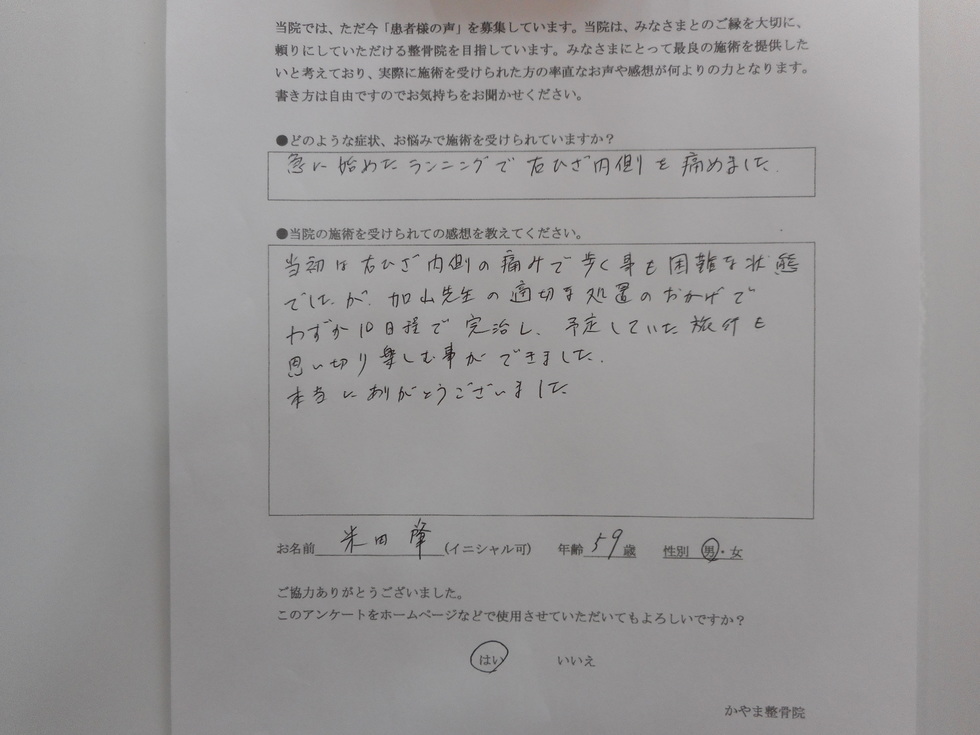 当院では、ただ今「患者様の声」を募集しています。当院は、みなさまとのご縁を大切に、
頼りにしていただける整骨院を目指しています。みなさまにとって最良の施術を提供した
いと考えており、実際に施術を受けられた方の率直なお声や感想が何よりの力となります。
書き方は自由ですのでお気持ちをお聞かせください。
●どのような症状、お悩みで施術を受けられていますか?
急に始めたランニングで右ひざ内側を痛めました.
●当院の施術を受けられての感想を教えてください。
当初は右ひざ内側の痛みで歩く事も困難な状態
でしたが、加山先生の適切な処置のおかげで
わずか10日程で完治し、予定していた旅行を
思い切り楽しむ事ができました.
本当にありがとうございました
お名前 米田 肇 (イニシャル可) 年齢 59 歳 性別 男・女
ご協力ありがとうございました。
このアンケートをホームページなどで使用させていただいてもよろしいですか?
はい いいえ
かやま整骨院